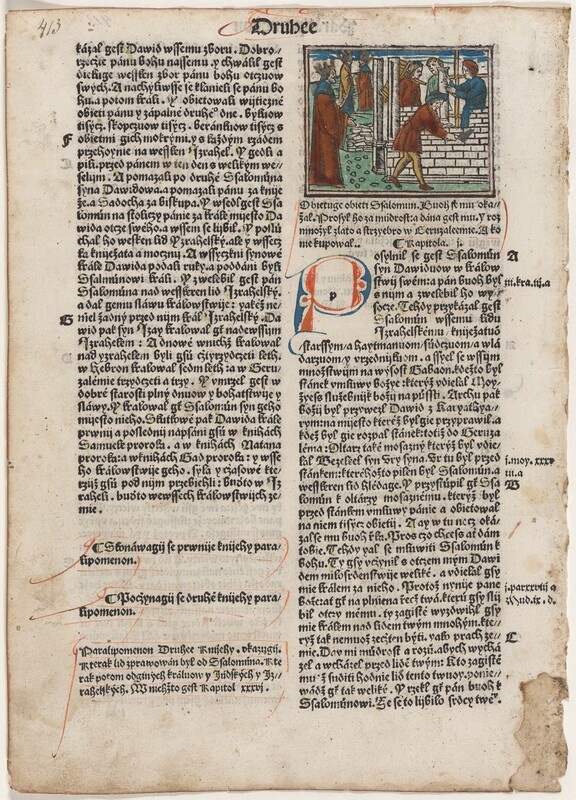 413
Druhee
kázal gest Dawid wssemu zboru. Dobro⸗
rzeczte pánu bohu nassemu. y chwálil gest
wesseken zbor pána boha otczuow
swych. A nachyliwsse se klanieli se pánu bo⸗
hu. a potom králi. Y obietowali wijtiezné
obieti pánu y zápalné druheº dne. bykuow
tisycz. skopczuow tisycz. beránkuow tisycz s
F
obietmi gich mokrými. y s každým rzádem
przehoynie na wessken Izrahel. Y gedli a
pili. przed pánem w ten den s welikým we⸗
selijm. A pomazali po druhé Ssalomúna
syna Dawidowa. a pomazali pánu za knije
že. a Sadocha za biskupa. Y wsedl gest Ssa
lomún na stoliczy pánie za krále miesto Da
wida otcze swého. a wssem se lijbil. Y poslú
chal ho wesken lid Izrahelský. ale y wssecz
ka knijžata a moczni. A wssyczkni synowé
krále Dawida podali ruky. a poddáni byli
Ssalmúnowi králi. Y zwelebil gest pán
Ssalomúna nad wesskeren lid Izrahelský.
a dal gemu sláwu králowstwije: yakéž ne⸗
miel žadný przed nijm král Izrahelský. Da
G
wid pak syn Izay kralowal gt nadewssijm
Izrahelem: A dnowé wnichž kralowal
nad yzrahelem byli gsú cztyrzydczeti leth.
w Hebron kralowal sedm leth: a w Geru⸗
zalémie trzydczeti a trzy. Y umrzel gest w
dobré starosti plný dnuow y bohatstwije y
sláwy. Y kralowal gt Ssalomún syn geho
miesto nieho. Skutkowé pak Dawida krále
prwnij a poslednij napsáni gsú w knihách
Samuele proroka. a w knihách Natana
proroka: a w knihách Gad proroka: y wsse
ho králowstwije geho. syla y czasowé kte⸗
rzijž gsú pod nijm przebiehli: buďto w Iz
raheli. buďto we wssech králowstwijch ze⸗
mie.
¶ Skonáwagij se prwnije knijehy para⸗
lipomenon.
¶ Poczynagij se druhé knijehy para⸗
lipomenon.
Paralipomenon Druhee Knijehy. okazugij.
Kterak lid zprawowán byl od Salomúna. Kte
rak potom odginých králuow y Júdských y Iz⸗
rahelských. W nichžto gest Kapitol xxxvj.
Obietuge obieti Ssalomun. Buoh se mu oka⸗
žal. Prosyl ho za múdrost: a dána gest mu. Y roz
množyl zlato a strzyebro w Geruzalemie. A ko
nie kupowal.. ¶ Kapitola. j.
A
p
osylnil se gest Ssalomún
syn Dawiduow w králow
stwij swém: a pán buoh byl
iii.kra.iij.a
s nijm a zwelebil ho wy⸗
socze. Tehdy przykázal gest
Ssalomún wssemu lidu
Izrahelskému kniježatuó
starssym / a haytmanuom / súdczuom / a wlá
darzuom / y vrzednijkuom. a ssyel se wssijm
množstwijm na wysost Gabaon. kdežto byl
stánek vmluwy božye: kterýž vdielal Moy⸗
žyess služebnijk božij na pússti. Archu pak
božij byl przywezl Dawid z Karyathya⸗
rym: na mijesto kteréž byl gije przyprawil. a
kdež byl gie rozpal stánek: totiž do Geruza
léma: Oltarz také mosazný kterýž byl vdie⸗
lal Bezeleel syn Vry syna Vr tu byl przed
i.moy.xxxv
stánkem: kteréhožto pilen byl Ssalomún. a
iii.a
wesskeren lid hledage. Y przystúpil gt Ssa
B
lomún k oltárzy mosaznému. kterýž byl
przed stánkem vmluwy pánie a obietowal
na niem tisycz obietij. A ay w tu nocz oká⸗
zal se mu buoh rzka. Pros czo chcess ať dám
tobie. Tehdy wzal se mluwiti Ssalomún k
bohu. Ty gsy vczynil s otczem mým Dawi
dem milosrdenstwie weliké. a vdielal gsy
mie králem za nieho. Protož nynije pane
i.parxxvij a
božezať gt naplniena rzecž twá. kterú gsy slij
Wúd.ix.d.
bil otczy mému. ty zagisté wyzdwihl gsy
mie králem nad lidem twým mnohým. kte⸗
rýž tak nemuož zeczten býti. yako prach ze⸗
C
mie. Day mi múdrost a rozū. abych wchá
zel a wcházel przed lidē twým: Kto zagisté
muož súditi hodnie lid tento twuoy. ponie⸗
wádž gt tak weliké. Y rzekl gt pán buoh k
Ssalomúnowi. Že se to lijbilo srdcy tweº.